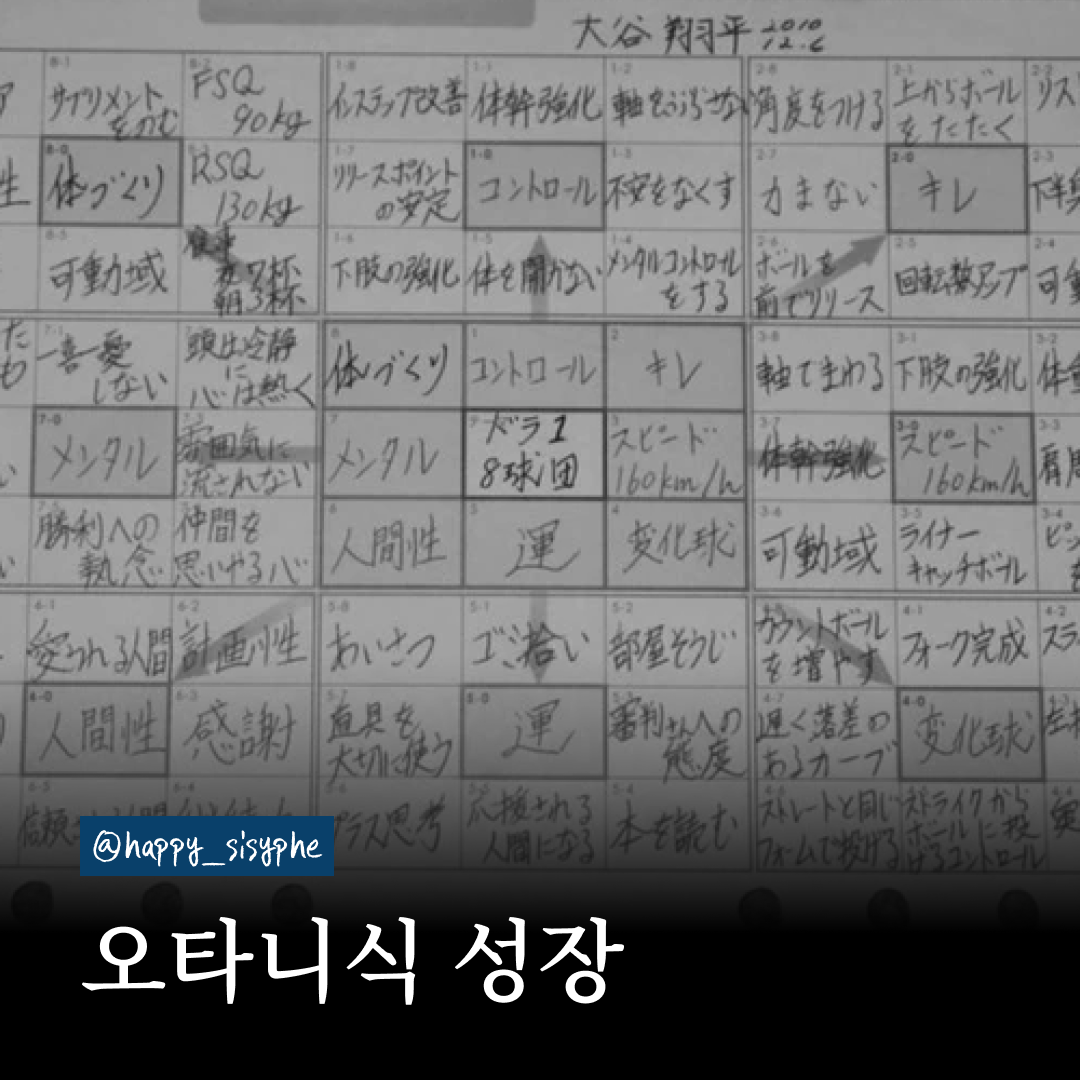 大谷 翔平 2010 12.6
サプリメントをのむ
FSQ 90kg
インステップ改善
体幹強化
軸をぶらさない
角度をつける
上からボールをたたく
リス
体づくり
RSQ 130kg
リリースポイントの安定
コントロール
不安をなくす
力まない
キレ
可動域
夜7杯 朝3杯
下肢の強化
体を開かない
メンタルコントロールをする
ボールを前でリリース
回転数アップ
一喜一憂しない
頭は冷静に心は熱く
体づくり
コントロール
キレ
軸でまわる
下肢の強化
メンタル
雰囲気に流されない
メンタル
ドラ1 8球団
スピード 160km/h
体幹強化
スピード 160km/h
勝利への執念
仲間を思いやる心
人間性
運
変化球
可動域
ライナーキャッチボール
愛される人間
計画性
あいさつ
ゴミ拾い
部屋そうじ
カウントボールを増やす
フォーク完成
人間性
感謝
道具を大切に使う
運
審判さんへの態度
遅く落差のあるカーブ
変化球
プラス思考
応援される人間になる
本を読む
ストレートと同じフォームで投げる
ストライクからボールに投げるコントロール
@happy_sisyphe
오타니식 성장